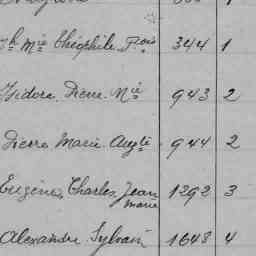 Th Mie Théophile Frois 344 1
Isidore Pierre Mie 943 2
Pierre Marie Augte 944 2
Eugène Charles Jean 1292 3
Marie
Alexandre Sylvain 1648 4